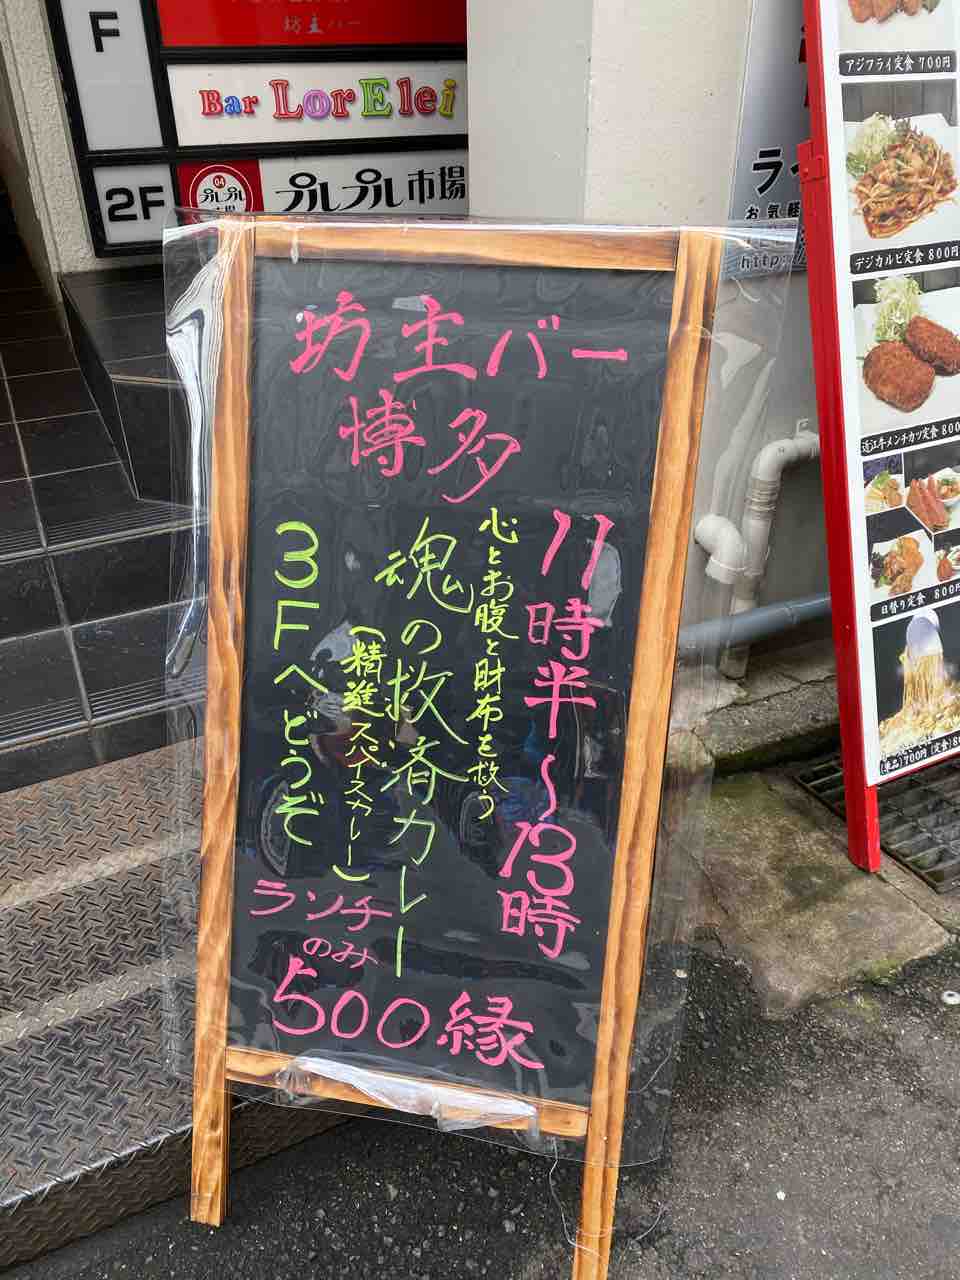 F
坊主バー
Bar LorElei
2F
04
プルプル
プルプル市場
お気軽
http:/
坊主バー
博多
11時半〜13時
心とお腹と財布を救う
魂の救済カレー
(精進スパイスカレー)
3Fへどうぞ
ランチ
のみ
500縁
アジフライ定食 700円
デジカルビ定食 800円
近江牛メンチカツ定食 800
日替り定食 800円
(単品)700円 (定食)8